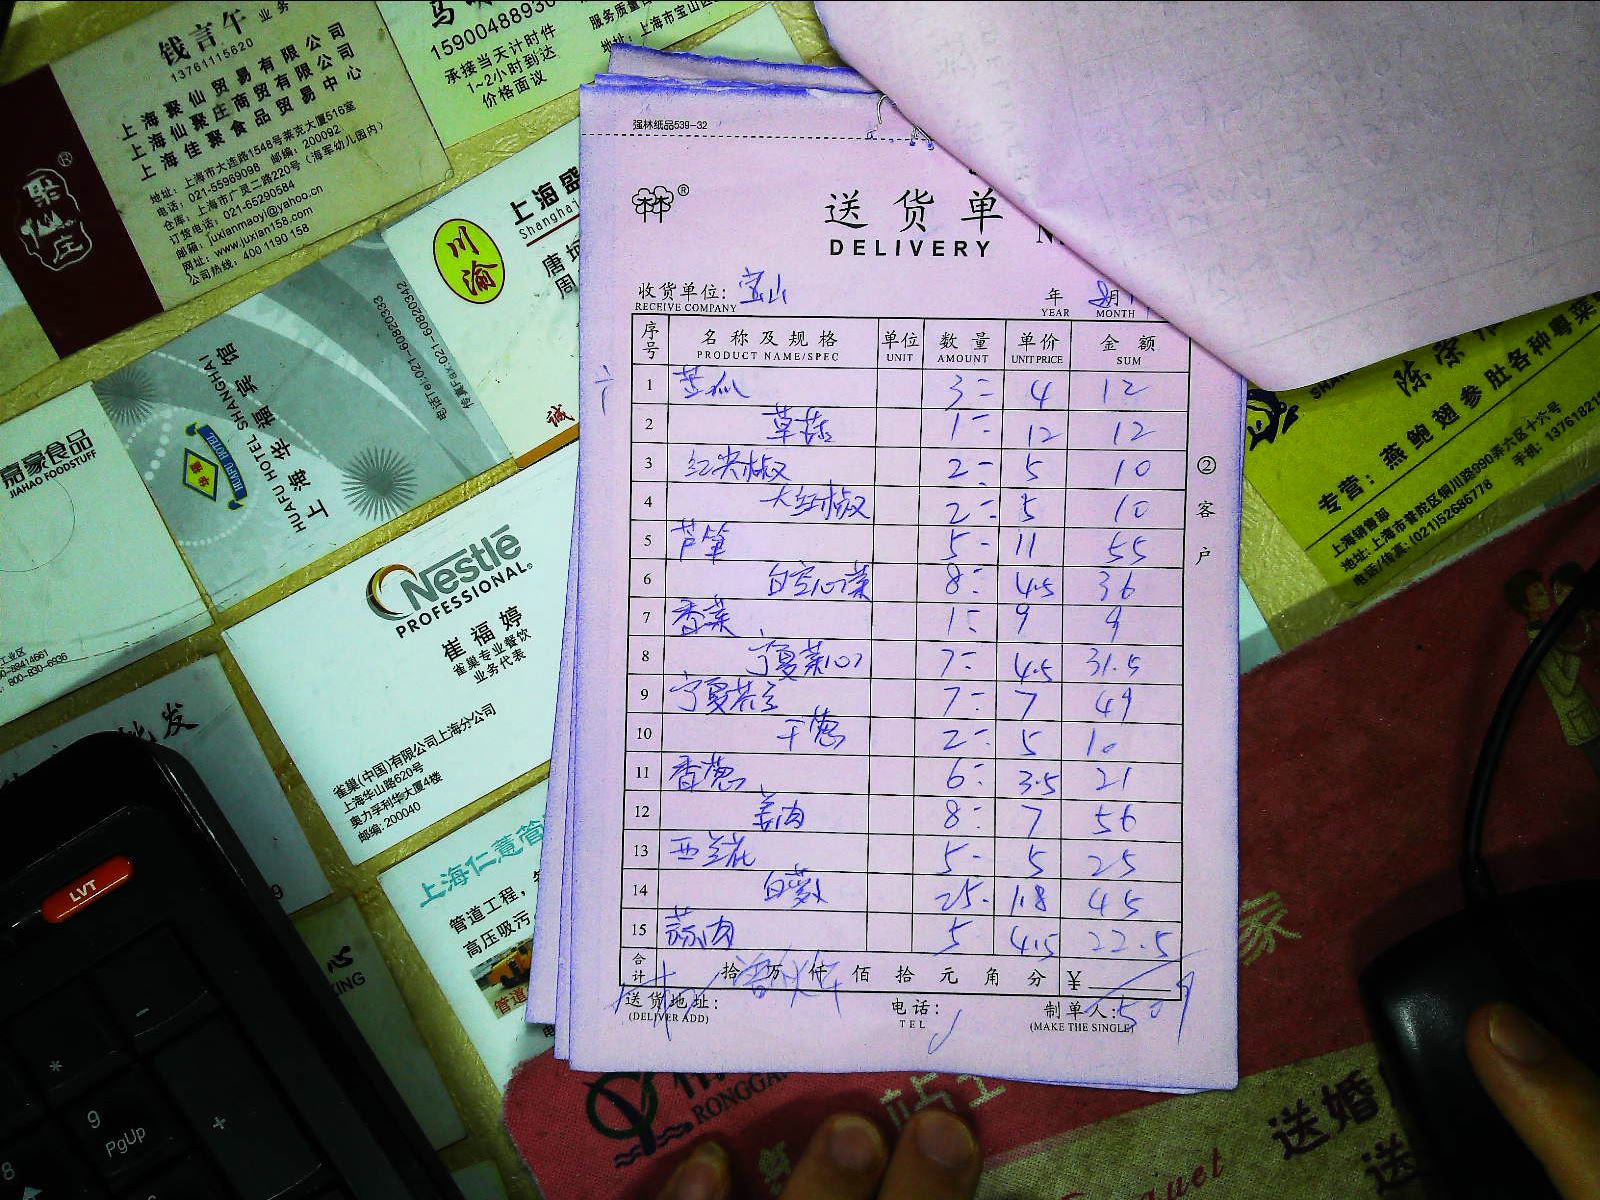 钱言午 业务
13761115620
上海聚仙贸易有限公司
上海仙聚庄商贸有限公司
上海佳聚食品贸易中心
地址：上海市大连路1548号莱克大厦516室
电话：021-55969098 邮编：200092
仓库：上海市广灵二路220号（海军幼儿园内）
订货电话：021-65290584
邮箱：juxianmaoyi@yahoo.cn
网址：www.juxian158.com
公司热线：400 1190 158
聚仙庄®
15900488930
承接当天计时件
1~2小时到达
价格面议
服务质量
地址：上海市宝山区
川渝
上海盛
Shanghai
唐
周
诚
电话Tel:021-60820342
传真Fax:021-60820333
上海华福宾馆
HUAFU HOTEL SHANGHAI
HUAFU HOTEL
嘉豪食品
JIAHAO FOODSTUFF
工业区
800-830-6936
Nestlé
PROFESSIONAL®
崔福婷
雀巢专业餐饮
业务代表
雀巢(中国)有限公司上海分公司
上海华山路620号
奥力孚利华大厦4楼
邮编: 200040
批发
上海仁薏管
管道工程，
高压吸污
管道
心
KING
强林纸品539-32
®
送货单
DELIVERY
收货单位：宝山 年 8月
RECEIVE COMPANY YEAR MONTH
序号 名称及规格 单位 数量 单价 金额
PRODUCT NAME/SPEC UNIT AMOUNT UNIT PRICE SUM
1 苦瓜 3= 4 12
2 草菇 1= 12 12
3 红尖椒 2= 5 10
4 大红椒 2= 5 10
5 芦笋 5- 11 55
6 白空心菜 8= 4.5 36
7 香菜 1= 9 9
8 宁夏菜心 7= 4.5 31.5
9 宁夏芥兰 7= 7 49
10 干葱 2= 5 10
11 香葱 6= 3.5 21
12 姜肉 8= 7 56
13 西兰花 5- 5 25
14 白萝卜 25- 1.8 45
15 蒜肉 5 4.5 22.5
合计 拾 万 仟 佰 拾 元 角 分 ¥
送货地址： 电话： 制单人：
(DELIVER ADD) TEL (MAKE THE SINGLE)
②客户
陈荣
专营：燕鲍翅参肚各种粤菜
上海铜川路销售部
地址: 上海市普陀区铜川路990弄六区十六号
电话/传真: (021)52686778
手机: 137618219
LVT
*
-
9
PgUp
+
8
RONGGA
家
送婚
送